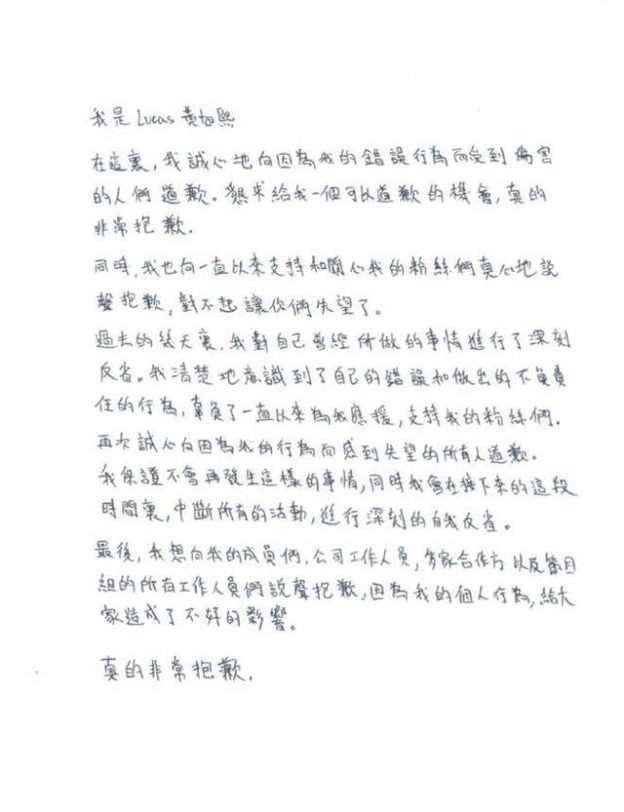 我是 Lucas 黃旭熙
在這裏, 我誠心地向因為我的錯誤行為而受到傷害
的人們道歉。懇求給我一個可以道歉的機會, 真的
非常抱歉.
同時, 我也向一直以來支持和關心我的粉絲們真心地說
聲抱歉, 對不起讓你們失望了。
過去的幾天裏, 我對自己曾經所做的事情進行了深刻
反省。我清楚地意識到了自己的錯誤和做出的不負責
任的行為, 辜負了一直以來為我應援, 支持我的粉絲們.
再次誠心向因為我的行為而感到失望的所有人道歉.
我保證不會再發生這樣的事情, 同時我會在接下來的這段
時間裏, 中斷所有的活動, 進行深刻的自我反省。
最後, 我想向我的成員們, 公司工作人員, 多家合作方以及節目
組的所有工作人員們說聲抱歉, 因為我的個人行為, 給大
家造成了不好的影響。
真的非常抱歉.